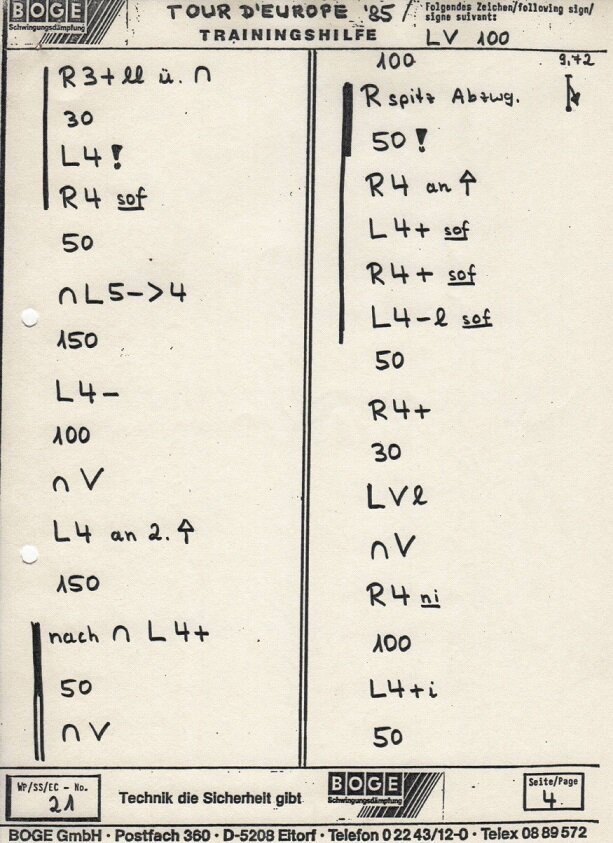 BOGE
Schwingungsdämpfung
TOUR D'EUROPE '85 /
TRAININGSHILFE
Folgendes Zeichen/following sign/
signe suivant:
LV 100
R3+ll ü. ∩
30
L4!
R4 sof
50
∩ L5->4
150
L4-
100
∩ V
L4 an 2. ↑
150
nach ∩ L4+
50
∩ V
100
9.72
R spitz Abzwg.
50!
R4 an ↑
L4+ sof
R4+ sof
L4-l sof
50
R4+
30
LVl
∩V
R4 ni
100
L4+i
50
WP/SS/EC - No.
21
Technik die Sicherheit gibt
BOGE
Schwingungsdämpfung
Seite/Page
4
BOGE GmbH · Postfach 360 · D-5208 Eitorf · Telefon 0 22 43/12-0 · Telex 08 89 572